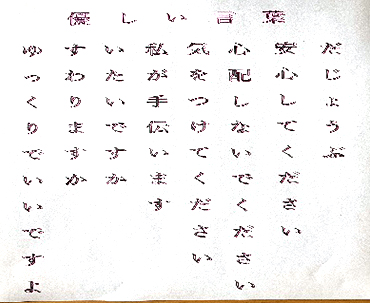 優しい言葉
だじょうぶ
安心してください
心配しないでください
気をつけてください
私が手伝います
いたいですか
すわりますか
ゆっくりでいいですよ